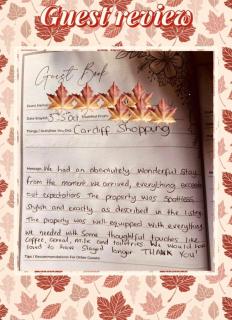 Guest review
Guest Book
Guest Name
Date Stayed 3-5 Oct Travelled From
Things / Activities You Did: Cardiff Shopping
Message: We had an absolutely wonderful stay
from the moment we arrived, everything exceeded
our expectations. The property was spotless
stylish and exactly as described in the listing
The property was well equipped with everything
we needed with some thoughtful touches like
coffee, cereal, milk and toiletries. We would have
loved to have stayed longer THANK YOU!
Tips / Recommendations For Other Guests: